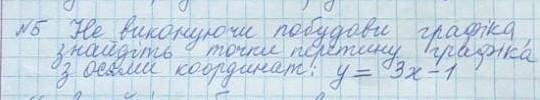 №5 Не виконуючи побудови графіка,
знайдіть точки перетину графіка
з осями координат: y = 3x-1